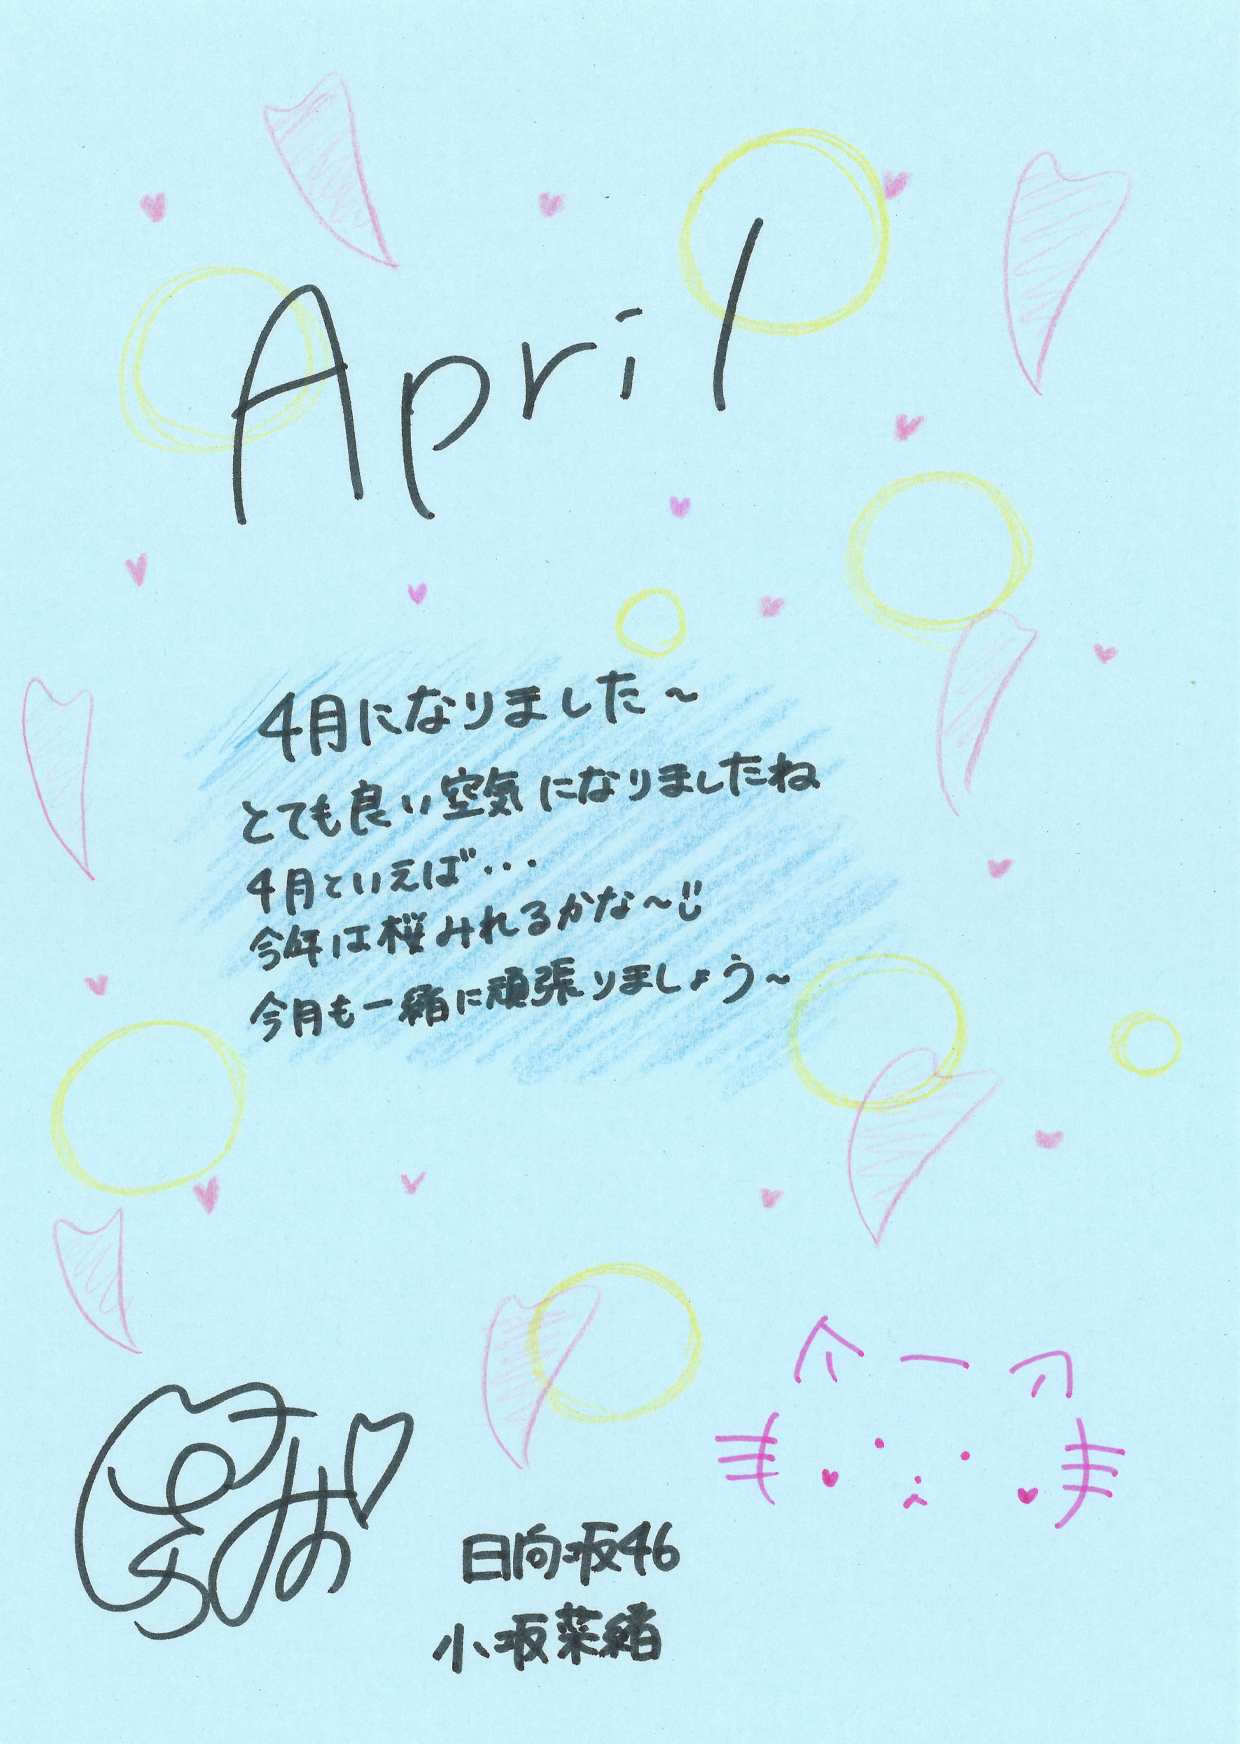 April
4月になりました~
とても良い空気になりましたね
4月といえば・・・
今年は桜みれるかな~
今月も一緒に頑張りましょう~
日向坂46
小坂菜緒